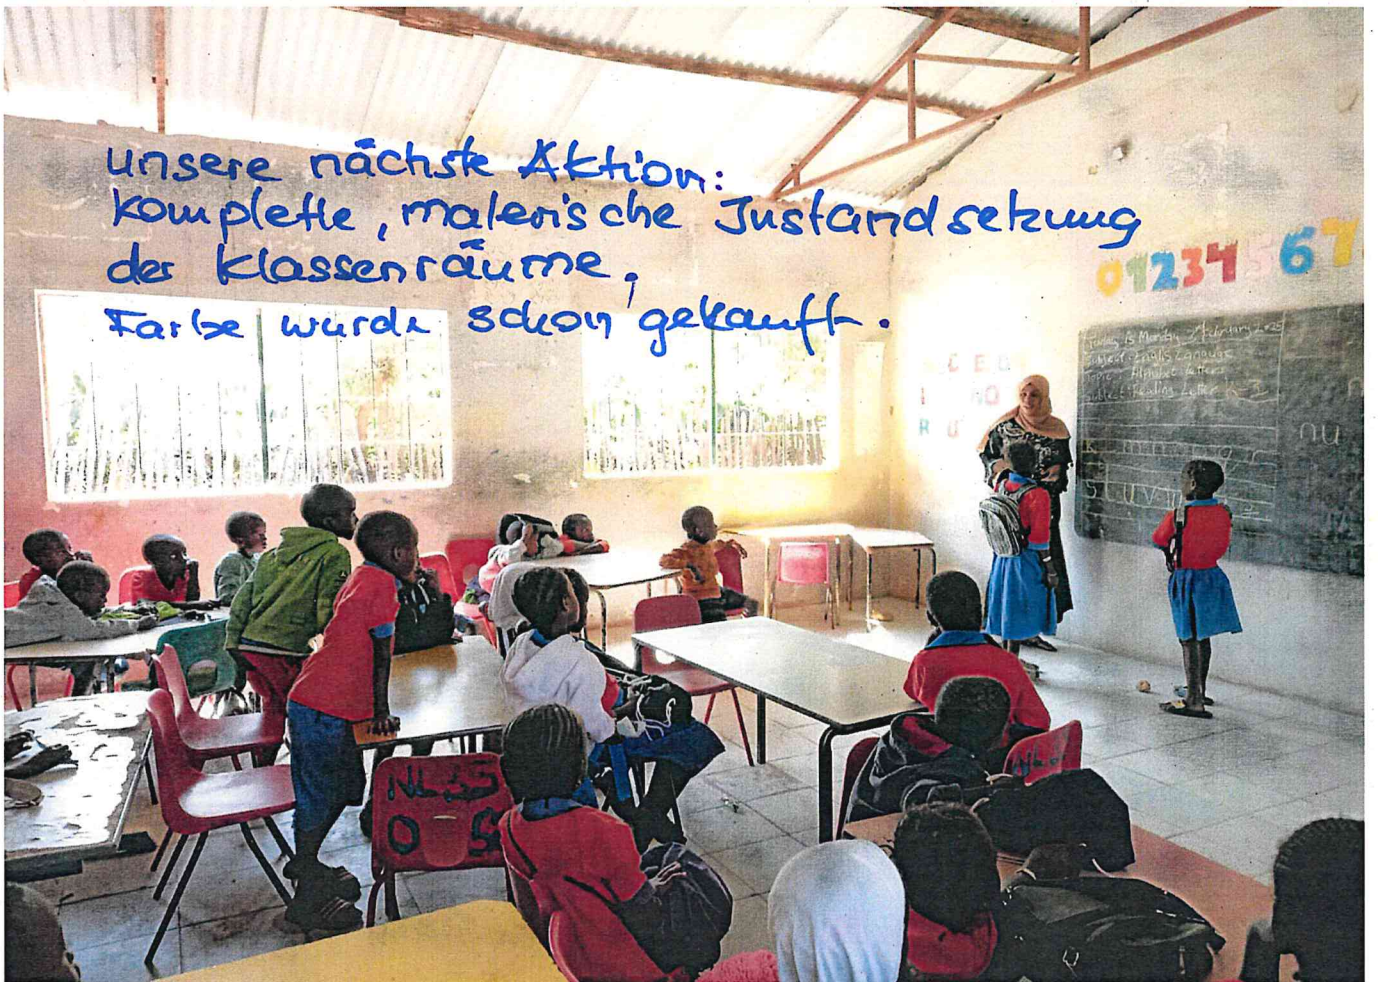 unsere nächste Aktion:
komplette, malerische Instandsetzung
der Klassenräume,
Farbe wurde schon gekauft.
01234567
Today is Monday February 2025
Subject English Language
Topic Alphabet Letters
Subject Reading Letter K-Z
nu
NLSS
OS